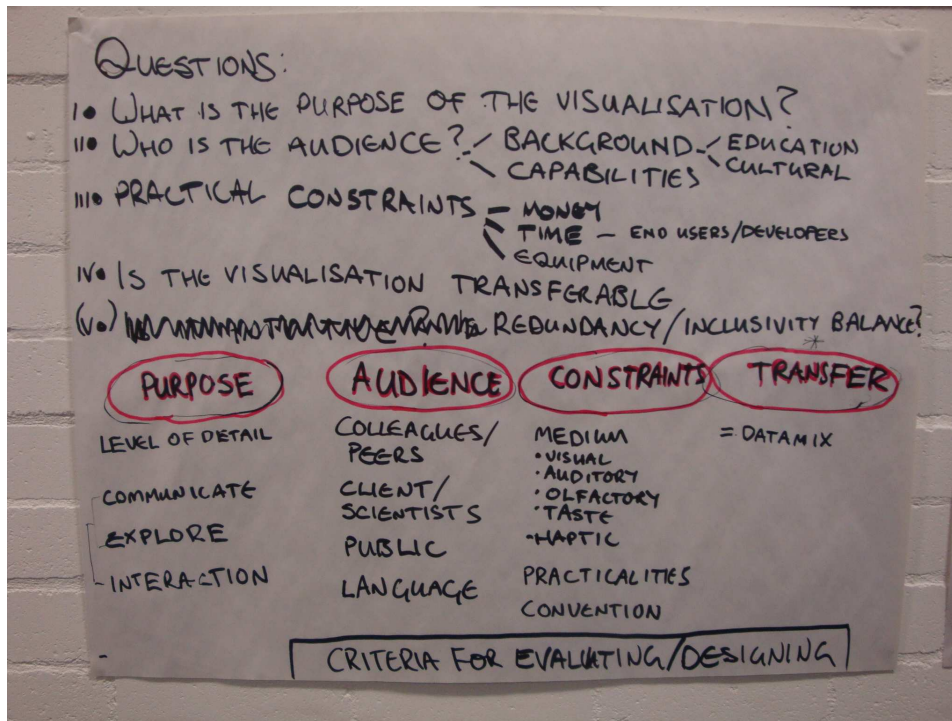 QUESTIONS:
I. WHAT IS THE PURPOSE OF THE VISUALISATION?
II. WHO IS THE AUDIENCE? BACKGROUND EDUCATION
CAPABILITIES CULTURAL
III. PRACTICAL CONSTRAINTS MONEY
TIME – END USERS/DEVELOPERS
EQUIPMENT
IV. IS THE VISUALISATION TRANSFERABLE
(V.) REDUNDANCY/INCLUSIVITY BALANCE?
PURPOSE AUDIENCE CONSTRAINTS TRANSFER*
LEVEL OF DETAIL
COMMUNICATE
EXPLORE
INTERACTION
COLLEAGUES/
PEERS
CLIENT/
SCIENTISTS
PUBLIC
LANGUAGE
MEDIUM
• VISUAL
• AUDITORY
• OLFACTORY
• TASTE
• HAPTIC
PRACTICALITIES
CONVENTION
= DATAMIX
CRITERIA FOR EVALUATING/DESIGNING